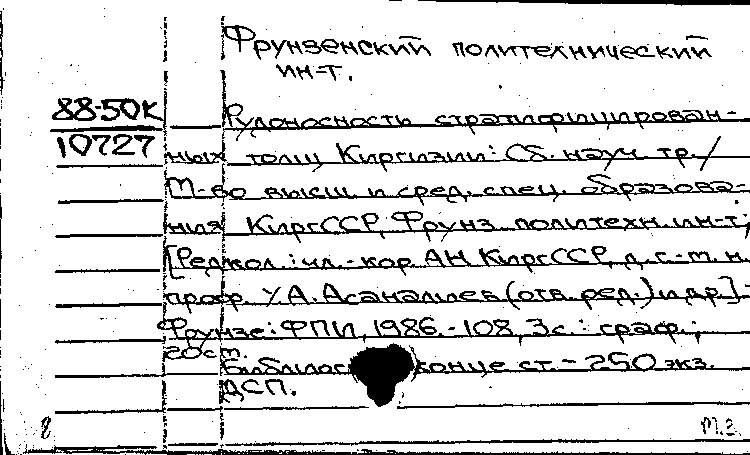 Фрунзенский политехнический
ин-т.
88-50К
10727
Рудоносность стратифицирован-
ных толщ Киргизии: Сб. науч. тр./
М-во высш. и сред. спец. образова-
ния КиргССР, Фрунз. политехн. ин-т;
[Редкол.: чл.-кор. АН КиргССР, д. г.-м. н.
проф. У.А. Асаналиев (отв. ред.) и др.].-
Фрунзе: ФПИ, 1986.-108, 3 с.: граф.;
конце ст. - 250 экз.
ДСП.
8